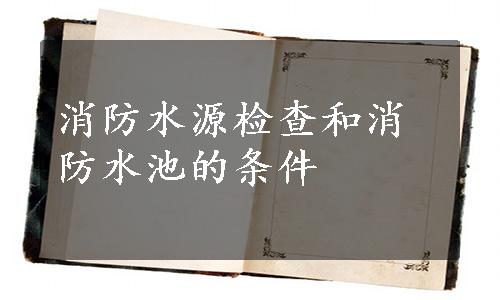 消防水源检查和消
防水池的条件